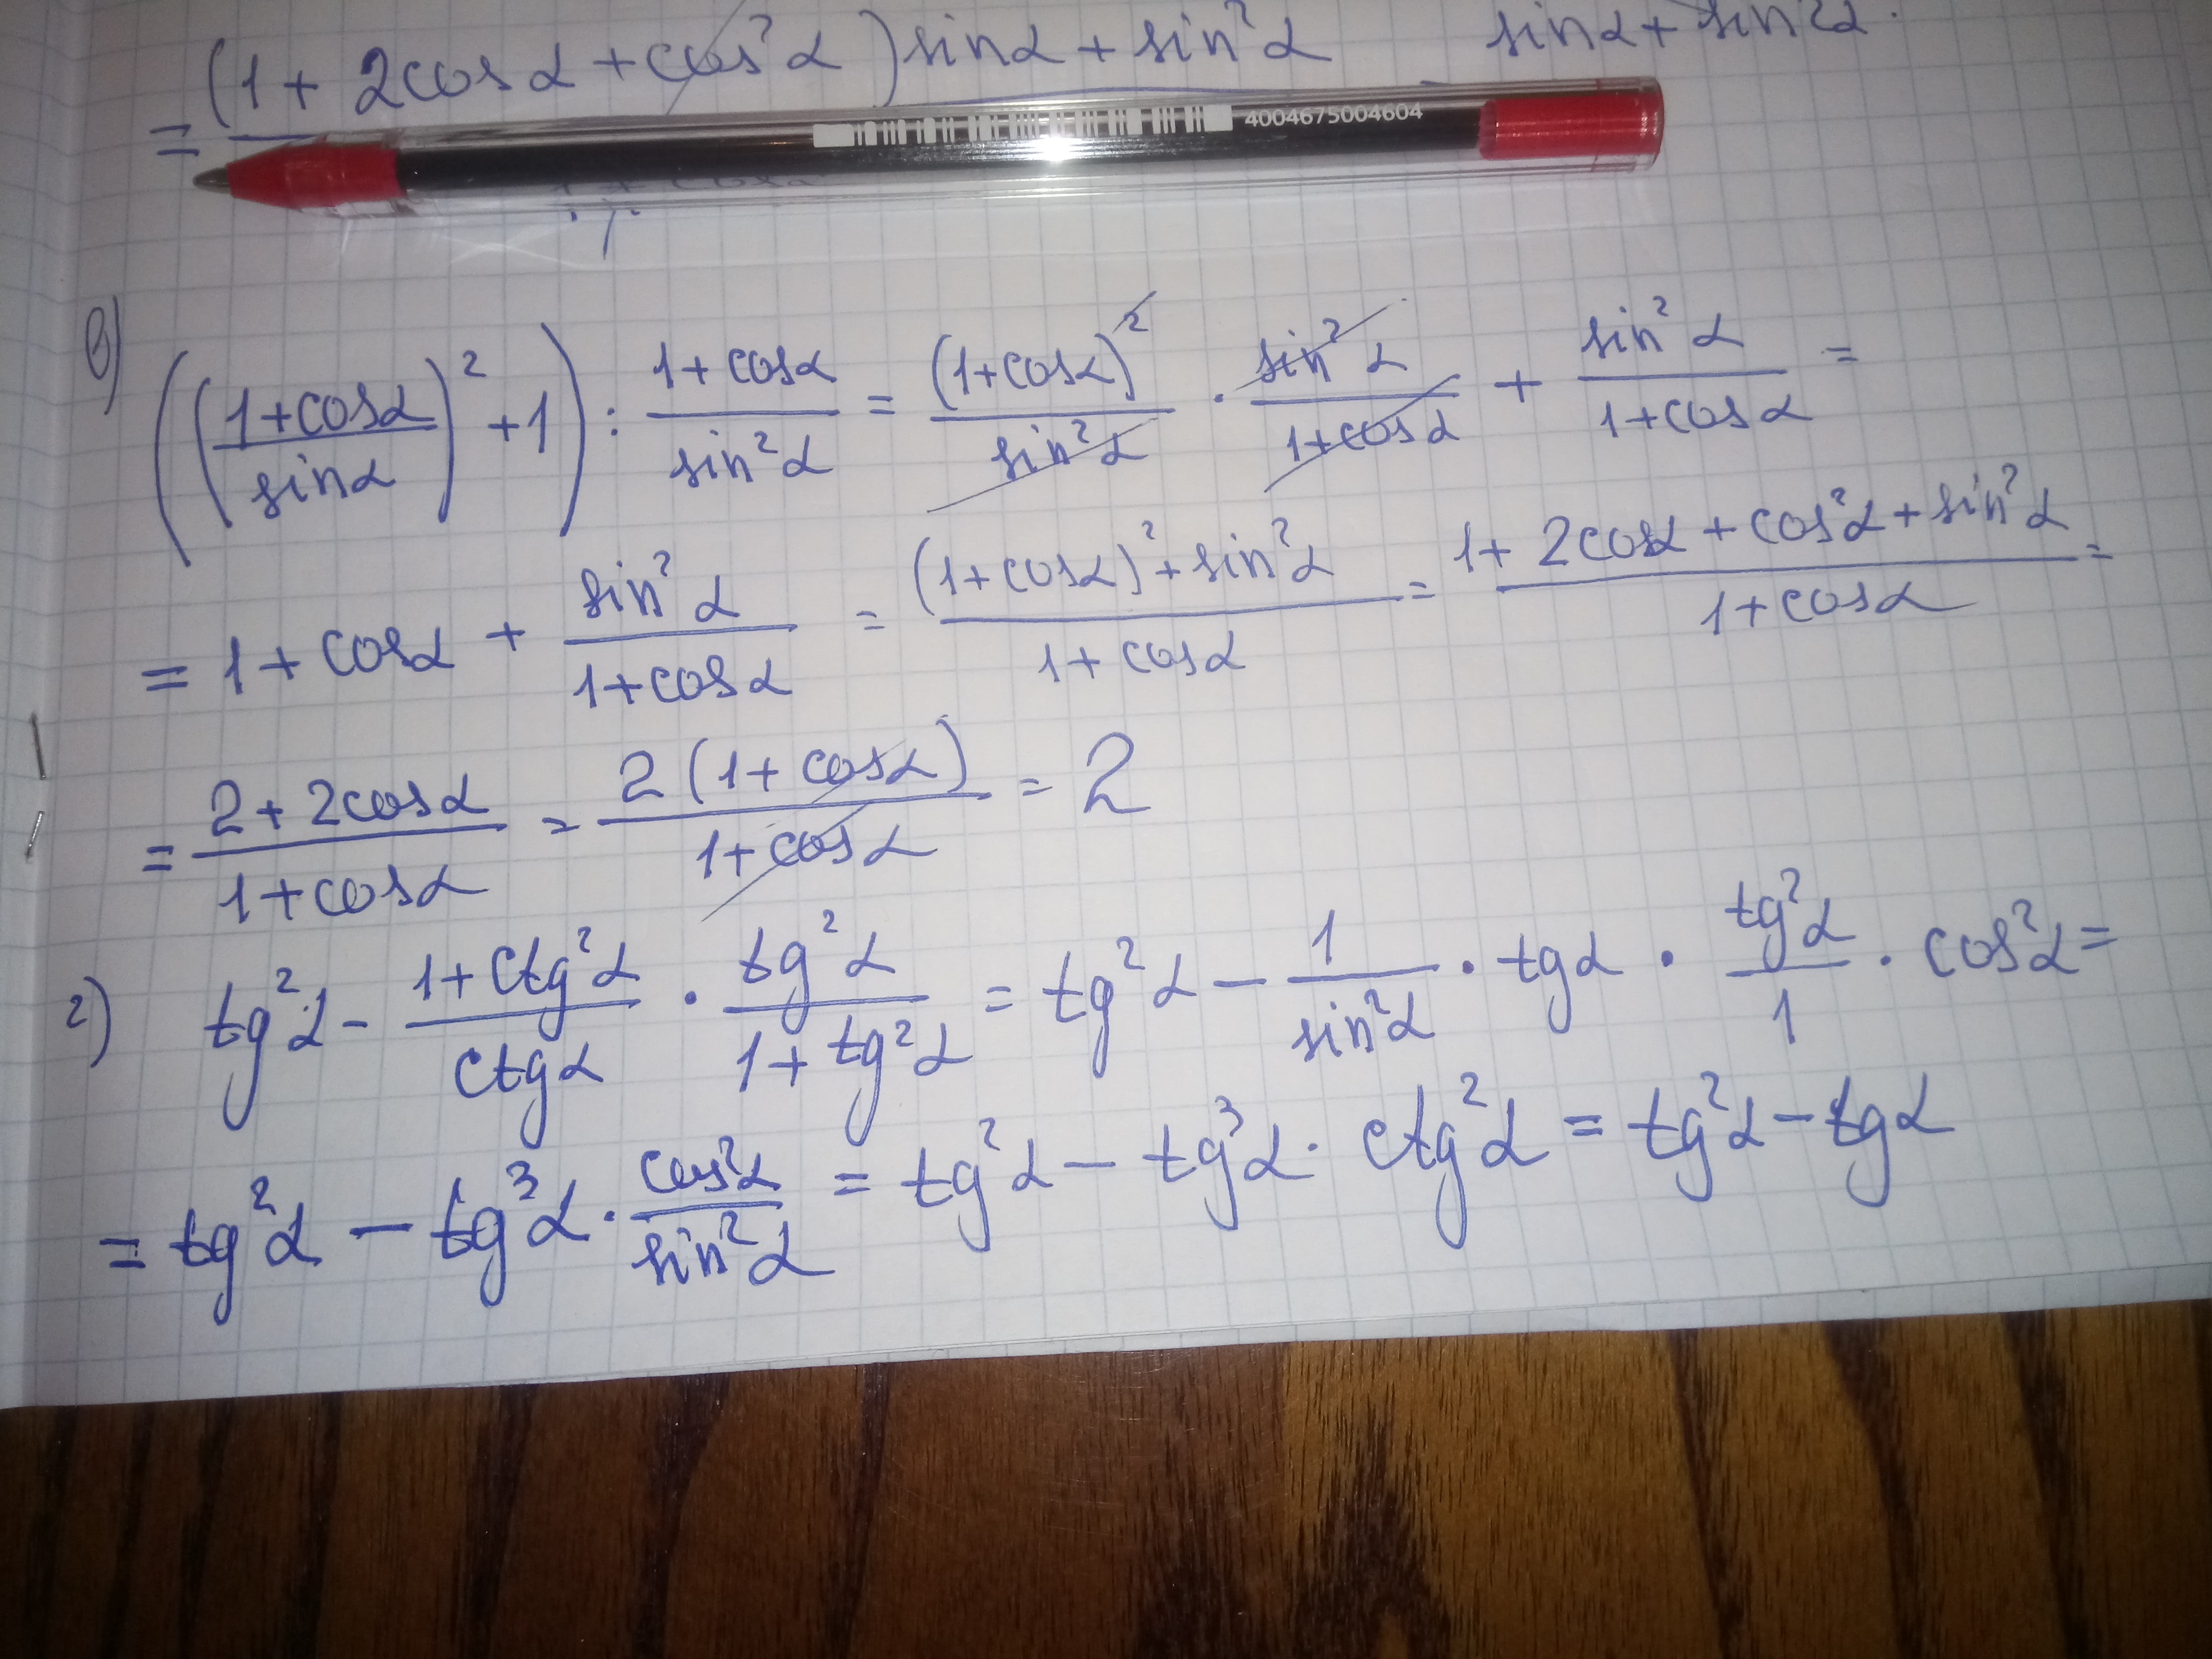 = (1 + 2cosα + cos²α) sinα + sin²α sinα + sin²α
4004675004604
1 + cosα
в)
((1+cosα/sinα)² + 1) : 1+cosα/sin²α = (1+cosα)²/sin²α · sin²α/1+cosα + sin²α/1+cosα =
= 1 + cosα + sin²α/1+cosα = (1+cosα)² + sin²α/1+cosα = 1 + 2cosα + cos²α + sin²α/1+cosα =
= 2 + 2cosα/1+cosα = 2(1+cosα)/1+cosα = 2
г) tg²α − 1+ctg²α/ctgα · tg²α/1+tg²α = tg²α − 1/sin²α · tgα · tg²α/1 · cos²α =
= tg²α − tg³α · cos²α/sin²α = tg²α − tg³α · ctg²α = tg²α − tgα